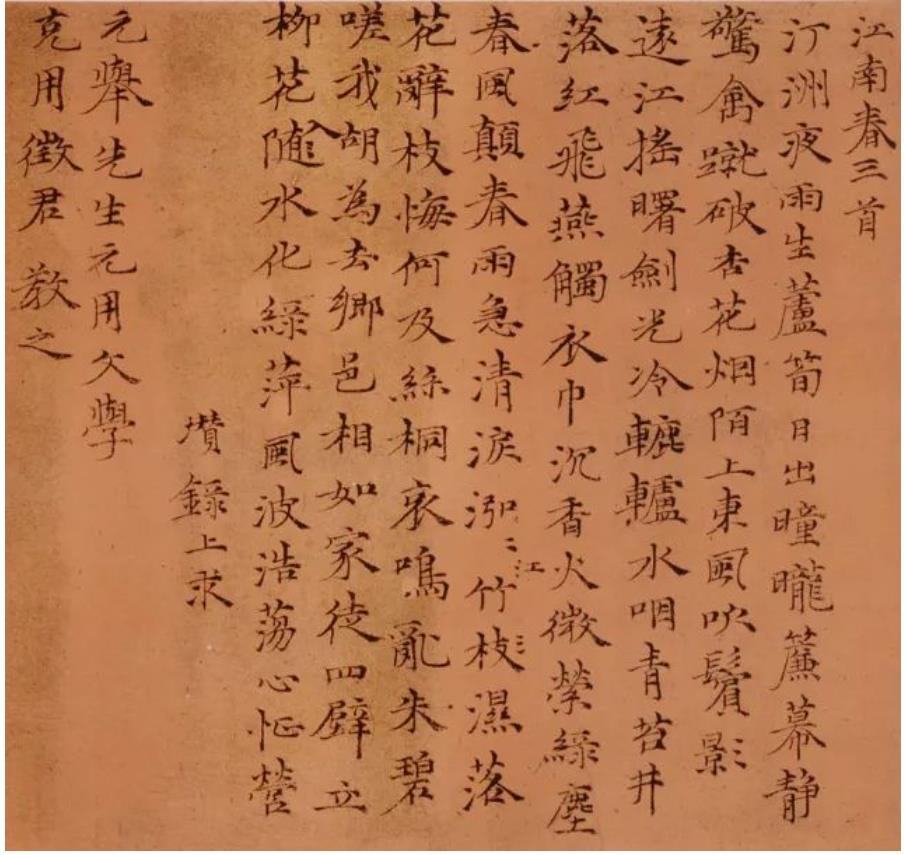 江南春三首
汀洲夜雨生蘆筍日出曈曨簾幕静
驚禽蹴破杏花烟陌上東風吹鬢影
遠江摇曙劍光冷轆轤水咽青苔井
落紅飛燕觸衣巾沉香火微縈緑塵
春風顛春雨急清淚泓〻江竹枝濕落
花辭枝悔何及絲桐哀鳴亂朱碧
嗟我胡為去鄉邑相如家徒四壁立
柳花入隨水化緑萍風波浩蕩心怔營
瓚錄上求
元舉先生元用文學
克用徵君 教之